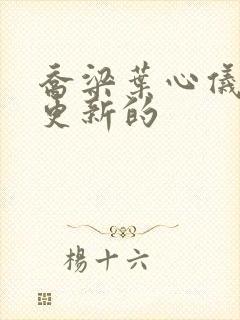 喬梁葉心儀
更新的
楊十六